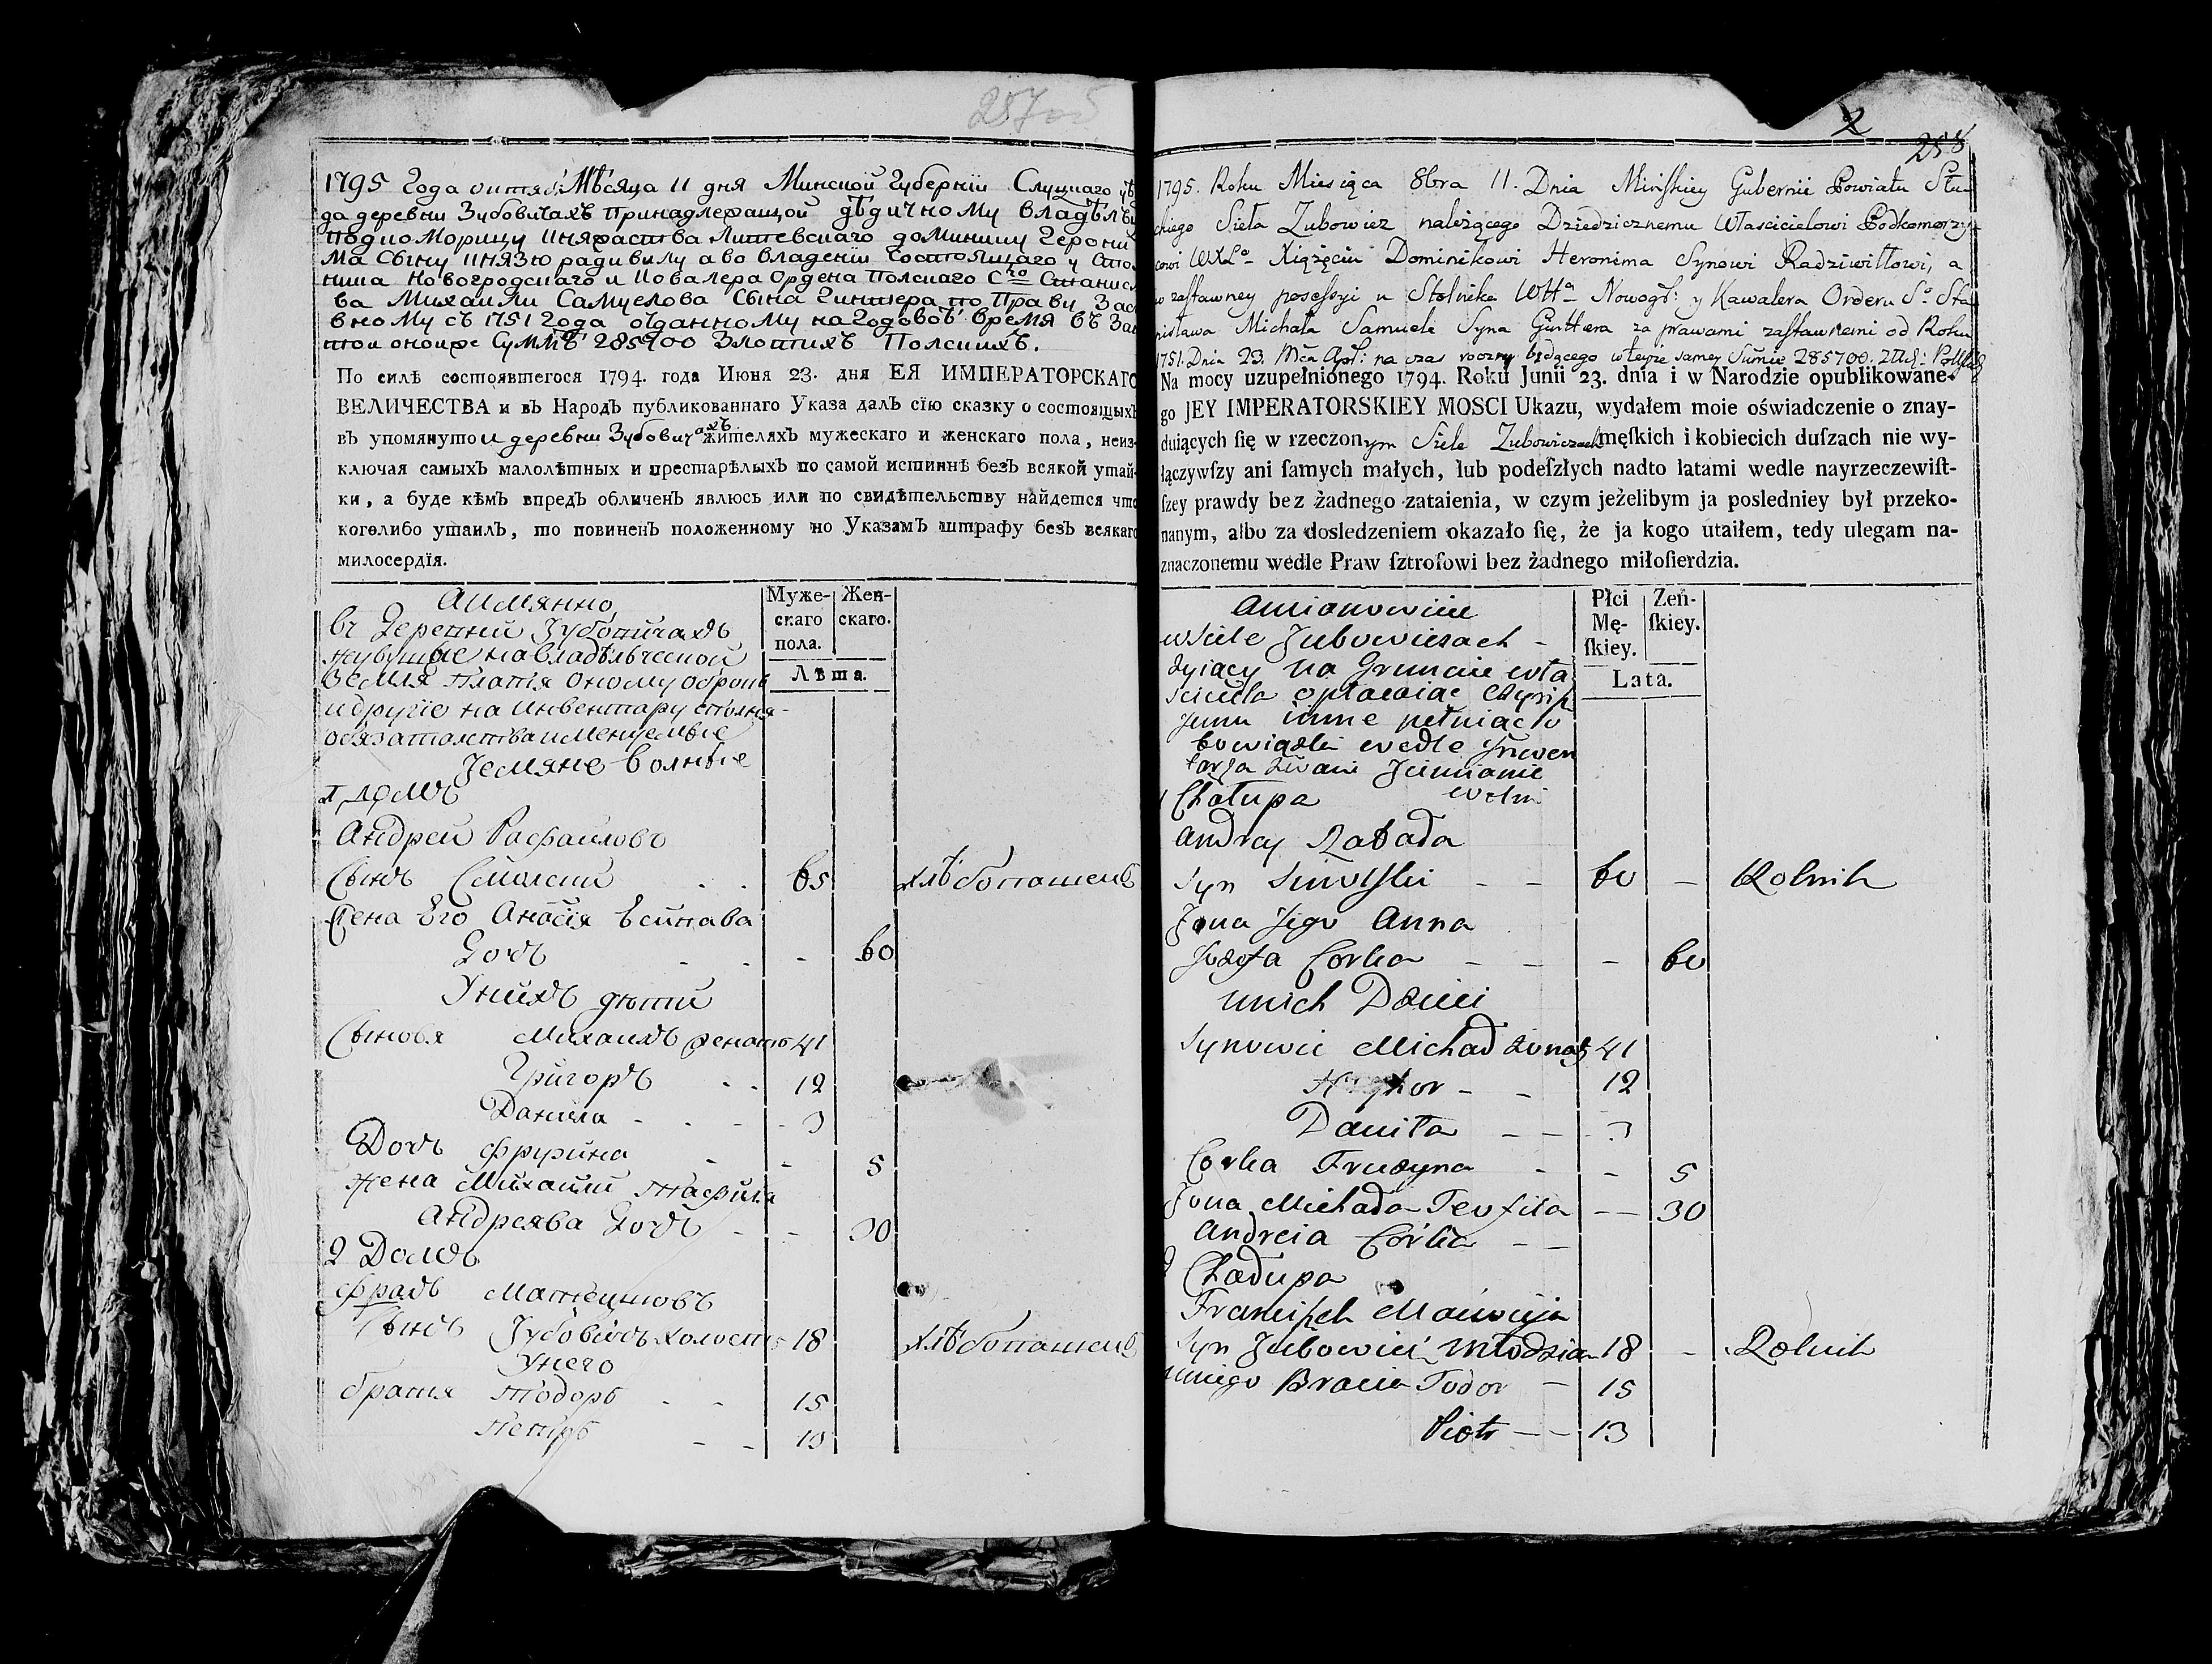 257об
1795 года октяб: Мѣсяца 11 дня Минской Губерніи Слуцкаго уѣ
да деревни Зубовичахъ принадлежащой дѣдичному владѣл
подкоморицу княжства Литевскаго доминику Герони
ма сыну князю радивилу а во владеніи состоящаго у Сто
ника Новогродскаго и кавалера Ордена Полскаго Сго Станисл
ва Михаили Самуелова сына Гинтера по праву Заст
вному съ 1751 года отданному на годовоѣ время въ Зак
тои оноиже суммѣ 285700 Злотихъ Полскихъ.
По силѣ состоявшегося 1794. года Июня 23. дня ЕЯ ИМПЕРАТОРСКАГО
ВЕЛИЧЕСТВА и въ Народъ публикованнаго Указа далъ сїю сказку о состоящыхъ
въ упомянутои деревни Зубовичахъ жителяхъ мужескаго и женскаго пола, неиз-
ключая самыхъ малолѣтныхъ и престарѣлыхъ по самой истиннѣ безъ всякой утай-
ки, а буде кѣмъ впредъ обличенъ явлюсь или по свидѣтельству найдется что
коголибо утаилъ, то повиненъ положенному по Указамъ штрафу безъ всякаго
милосердїя.
Муже-
скаго
пола.
Жен-
скаго.
Лѣта.
Аимянно
вч Деревни Зубовичахъ
живущие на владѣлческой
Земля платя оному оброкъ
и другіе на Инвентару сполня-
обязателства именуемые
Земяне волные
1 домъ
Андрей Расфаиловъ
Сынъ Смолски - - 65 хлѣбопашецъ
Жена Его
Дочъ - - - 60
Унихъ дѣти
Сыновя Михаилъ женатъ 41
Григоръ - - 12
Данила - - - 3
Дочъ фрузина - - 5
жена Михаили Тиофила
Андреява Дочъ - - 30
2 Домъ
Матнеушовъ
Сынъ Зубовичъ холостъ 18 хлѣбопашецъ
Унего
братя Тодоръ - - 15
Петръ - - 13
2
258
1795. Roku Miesiąca 8bra 11. Dnia Mińskiey Gubernii Powiatu Słu-
ckiego Sieła Zubowicz należącego Dziedzicznemu Własccicielowi Podkomorzy-
cowi WXLo Xiążęciu Dominikowi Heronima Synowi Radziwiłłowi, a
w zastawney posessyi u Stolnika WHa Nowogr: y Kawalera Orderu So Sta-
nisława Michała Samuela Syna Günthera za prawami zastawnemi od Roku
1751. Dnia 23. Mca Apr: na czas roczny będącego w teyże samey Sumie 285700. Złłch: Polskich
Na mocy uzupełnionego 1794. Roku Junii 23. dnia i w Narodzie opublikowane-
go JEY IMPERATORSKIEY MOSCI Ukazu, wydałem moie oświadczenie o znay-
duiących ſię w rzeczonym Siele Zubowiczach męſkich i kobiecich duſzach nie wy-
łączywſzy ani ſamych małych, lub podeſzłych nadto latami wedle nayrzeczewiſt-
ſzey prawdy bez żadnego zataienia, w czym jeżelibym ja posledniey był przeko-
nanym, albo za dosledzeniem okazało ſię, że ja kogo utaiłem, tedy ulegam na-
znaczonemu wedle Praw ſztroſowi bez żadnego miłoſierdzia.
Płci
Mę-
ſkiey.
Zeń-
ſkiey.
Lata.
Amianowicie
w Siele Zubowiczach -
żyiący na Gruncie wła
sciciela opłacaiąc Czynsz
Jemu inne pełniąc o
bowiązki wedle Inwen
tarza zwani Ziemianie
wolni
1 Chałupa
Andrzy Rafała
Syn Smolski - - 60 - Rolnik
Zona Jego Anna
Jozefa Corka - - - 60
unich Dzieci
Synowie Michał żonaty 41
- - 12
Daniła - - - 3
Corka Fruzyna - - 5
Zona Michała Teofila - - 30
Andreia Corka - -
2 Chałupa
Franciszek Maciuja
Syn Zubowicz Młodzian 18 - Rolnik
u niego Bracia Todor - 15
Piotr - - 13